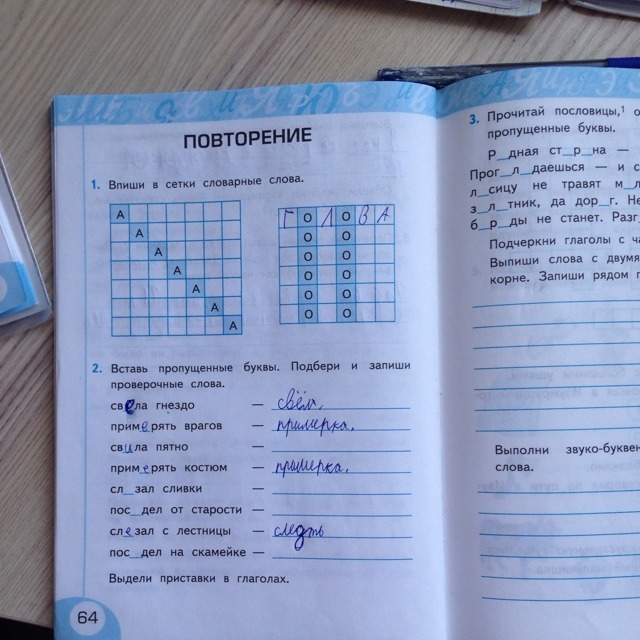 ПОВТОРЕНИЕ
1. Впиши в сетки словарные слова.
А
А
А
А
А
А
А
Г О Л О В А
О О
О О
О О
О О
О О
2. Вставь пропущенные буквы. Подбери и запиши
проверочные слова.
свела гнездо —
примерять врагов — примерка.
свила пятно —
примерять костюм — примерка.
сл_зал сливки —
пос_дел от старости —
слезал с лестницы —
пос_дел на скамейке —
Выдели приставки в глаголах.
64
3. Прочитай пословицы,¹ о
пропущенные буквы.
Р_дная ст_р_на —
Прог_л_даешься — и с
л_сицу не травят м_
з_л_тник, да дор_г. Не
б_р_ды не станет. Разг
Подчеркни глаголы с ча
Выпиши слова с двумя
корне. Запиши рядом п
Выполни звуко-буквен
слова.